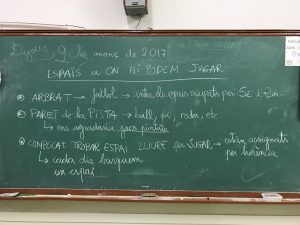 Dijous, 9 de març de 2017
ESPAIS a ON HI PODEM JUGAR
ARBRAT → futbol → entre els espais ocupats per 5è i 2n
PARET de la PISTA → ball, pi, roda, etc
↳ ens agradaria jocs pintats
COMPLICAT TROBAR ESPAI LLIURE per JUGAR → estan assignats
per herència
↳ cada dia busquem
un espai